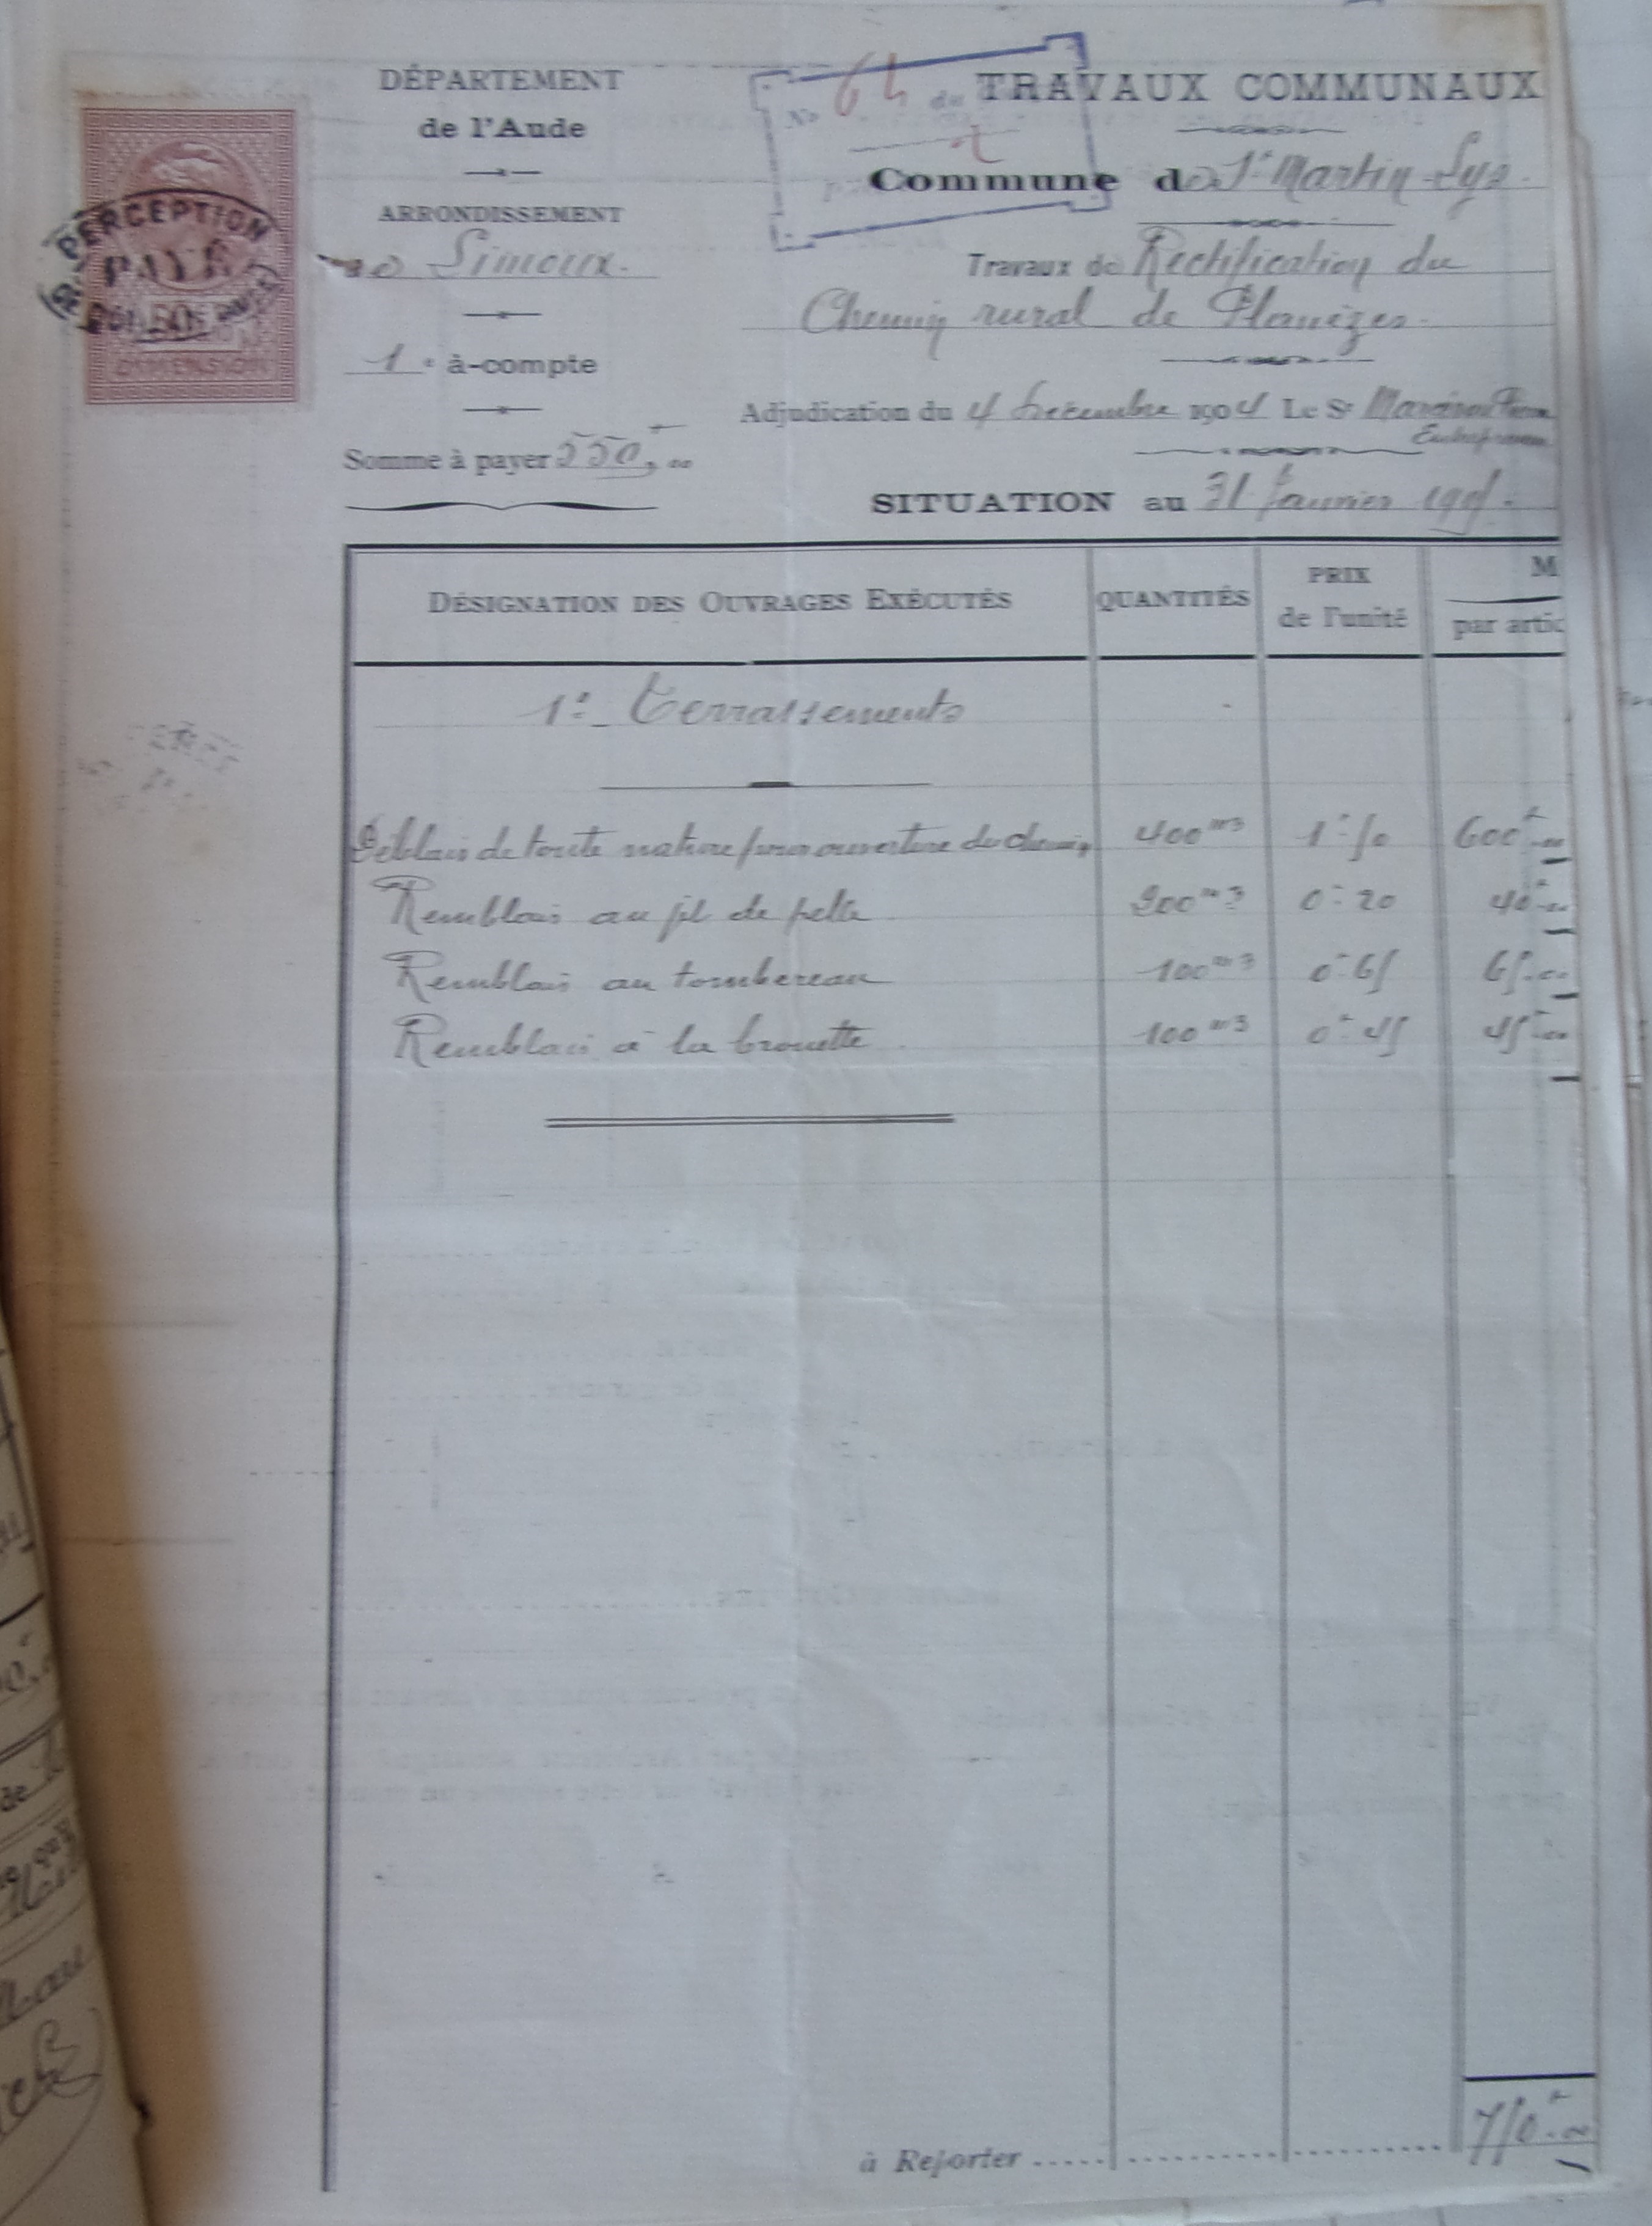 DÉPARTEMENT
de l'Aude
ARRONDISSEMENT
de Limoux.
1e à-compte
Somme à payer 550f,00
PERCEPTION
PAYÉ
DIMENSION
No 64 du
TRAVAUX COMMUNAUX
Commune de St Martin-Lys.
Travaux de Rectification du
Chemin rural de Planèzes.
Adjudication du 4 Décembre 1904 Le Sr
Entrepreneur
SITUATION au 31 Janvier 190
DÉSIGNATION DES OUVRAGES EXÉCUTÉS QUANTITÉS PRIX de l'unité M par artic
1º_ Terrassements
Déblais de toute nature pour ouverture du chemin 400m3 1f50 600f,00
Remblais au jet de pelle 200m3 0f20 40f,00
Remblais au tombereau 100m3 0f65 65f,00
Remblais à la brouette 100m3 0f45 45f,00
à Reporter ..... 750f,00